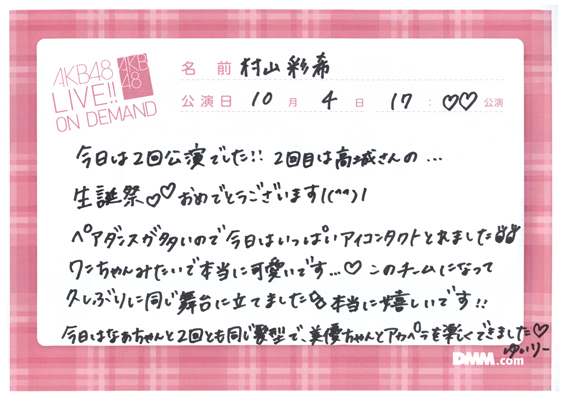 AKB48
LIVE!!
ON DEMAND
AKB
48
名 前 村山彩希
公演日 10 月 4 日 17 : ♡♡ 公演
今日は2回公演でした!! 2回目は高城さんの…
生誕祭♡♡おめでとうございます!(^^)!
ペアダンスが多いので今日はいっぱいアイコンタクトとれました
ワンちゃんみたいで本当に可愛いです…♡ このチームになって
久しぶりに同じ舞台に立てました 本当に嬉しいです!!
今日はなぁちゃんと2回とも同じ髪型で、美優ちゃんとアカペラを楽しくできました♡
ゆいりー
DMM.com